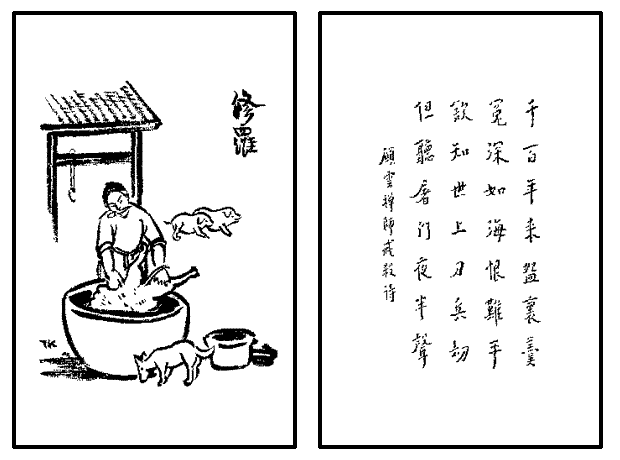 修羅
TK
千百年來盌裏羹
冤深如海恨難平
欲知世上刀兵劫
但聽屠門夜半聲
願雲禪師戒殺詩